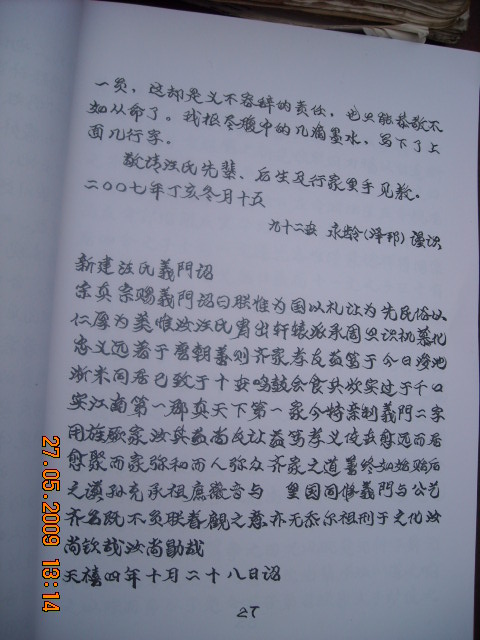 一员，这却是义不容辞的责任，也只能恭敬不
如从命了。我根尽腹中的几滴墨水，写下了上
面几行字。
敬请汪氏先辈、后生及行家里手见教.
二〇〇七年丁亥冬月十五
九十二世 永龄(泽邦)谨识
新建汪氏義門诏
宋真宗赐義門诏曰朕惟为国以礼让为先民俗以
仁厚为美惟汝汪氏胄出轩辕派承周
忠义远著于唐朝善则齐家孝友益笃于今日
淅米同居已致于十世鸣鼓会食共炊实过于千口
实江南第一那真天下第一家今特亲制義門二字
用旌厥家汝其益尚友让益笃孝义使世愈远而居
愈聚而家弥和而人弥众齐家之道善终如始贻后
之谟孙克承祖庶徽音与 里因同修義門与公艺
齐名既不负朕眷观之意亦无忝尔祖刑于文化汝
尚钦哉汝尚勖哉
天禧四年十月二十八日诏
27
27.05.2009 13:14